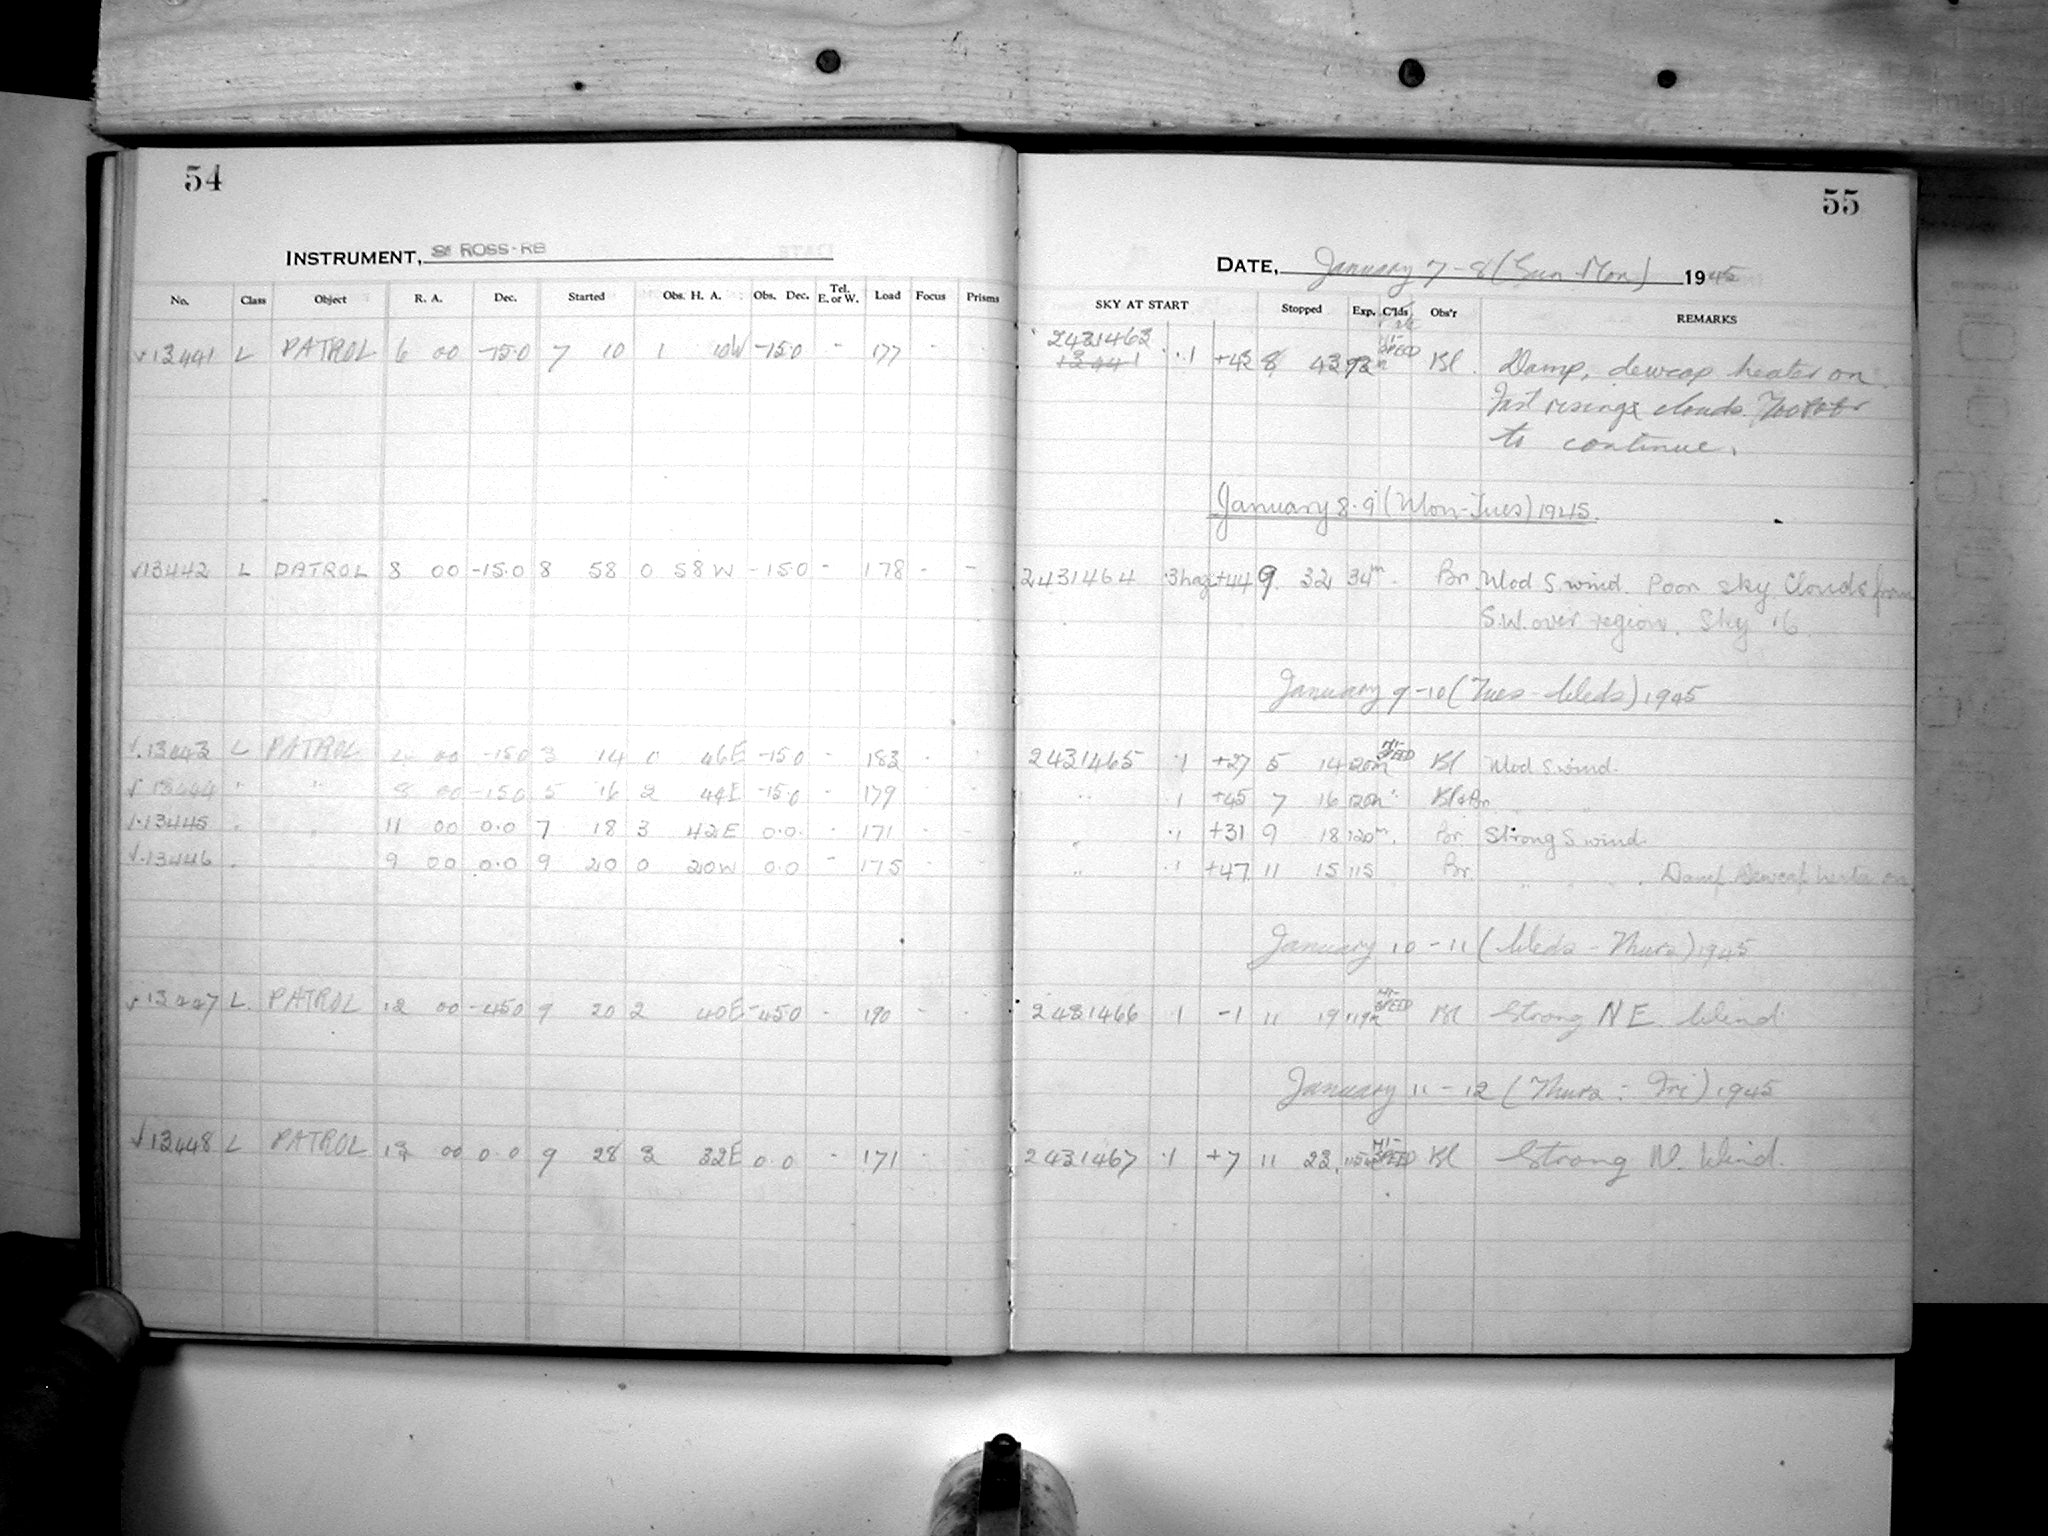 54
INSTRUMENT, ROSS-RB
No. Class Object R. A. Dec. Started Obs. H. A. Obs. Dec. Tel. E. or W. Load Focus Prisms
√13441 L PATROL 6 00 -15.0 7 10 1 10W -15.0 - 177 - -
√13442 L PATROL 8 00 -15.0 8 58 0 58W -15.0 - 178 - -
√13443 L PATROL 4 00 -15.0 3 14 0 46E -15.0 - 183 - -
√13444 " " 8 00 -15.0 5 16 2 44E -15.0 - 179 - -
√13445 " " 11 00 0.0 7 18 3 42E 0.0 - 171 - -
√13446 " 9 00 0.0 9 20 0 20W 0.0 - 175
√13447 L PATROL 12 00 -45.0 9 20 2 40E -45.0 - 190 - -
√13448 L PATROL 13 00 0.0 9 28 3 32E 0.0 - 171 - -
55
DATE, January 7-8 (Sun-Mon) 1945
SKY AT START Stopped Exp. C'lds Obs'r REMARKS
2431463
13441 .1 +43 8 43 93m HI-SPEED Bl. Damp, dewcap heater on.
Fast rising clouds. Too Poor
to continue.
January 8-9 (Mon-Tues) 1945.
2431464 .3 haze +44 9 32 34m. Br. Mod S. wind. Poor sky Clouds from
S.W. over region. Sky .6
January 9-10 (Tues-Weds) 1945
2431465 .1 +27 5 14 120m HI-SPEED Bl Mod S wind.
" .1 +45 7 16 120m " Bl+Br " "
" .1 +31 9 18 120m. Br. Strong S wind.
" .1 +47 11 15 115 Br. " " " . Damp Dewcap heater on.
January 10-11 (Weds-Thurs) 1945
2431466 .1 -1 11 19 119m HI-SPEED Bl Strong N E Wind
January 11-12 (Thurs-Fri) 1945
2431467 .1 +7 11 23 115m HI-SPEED Bl Strong N. Wind.